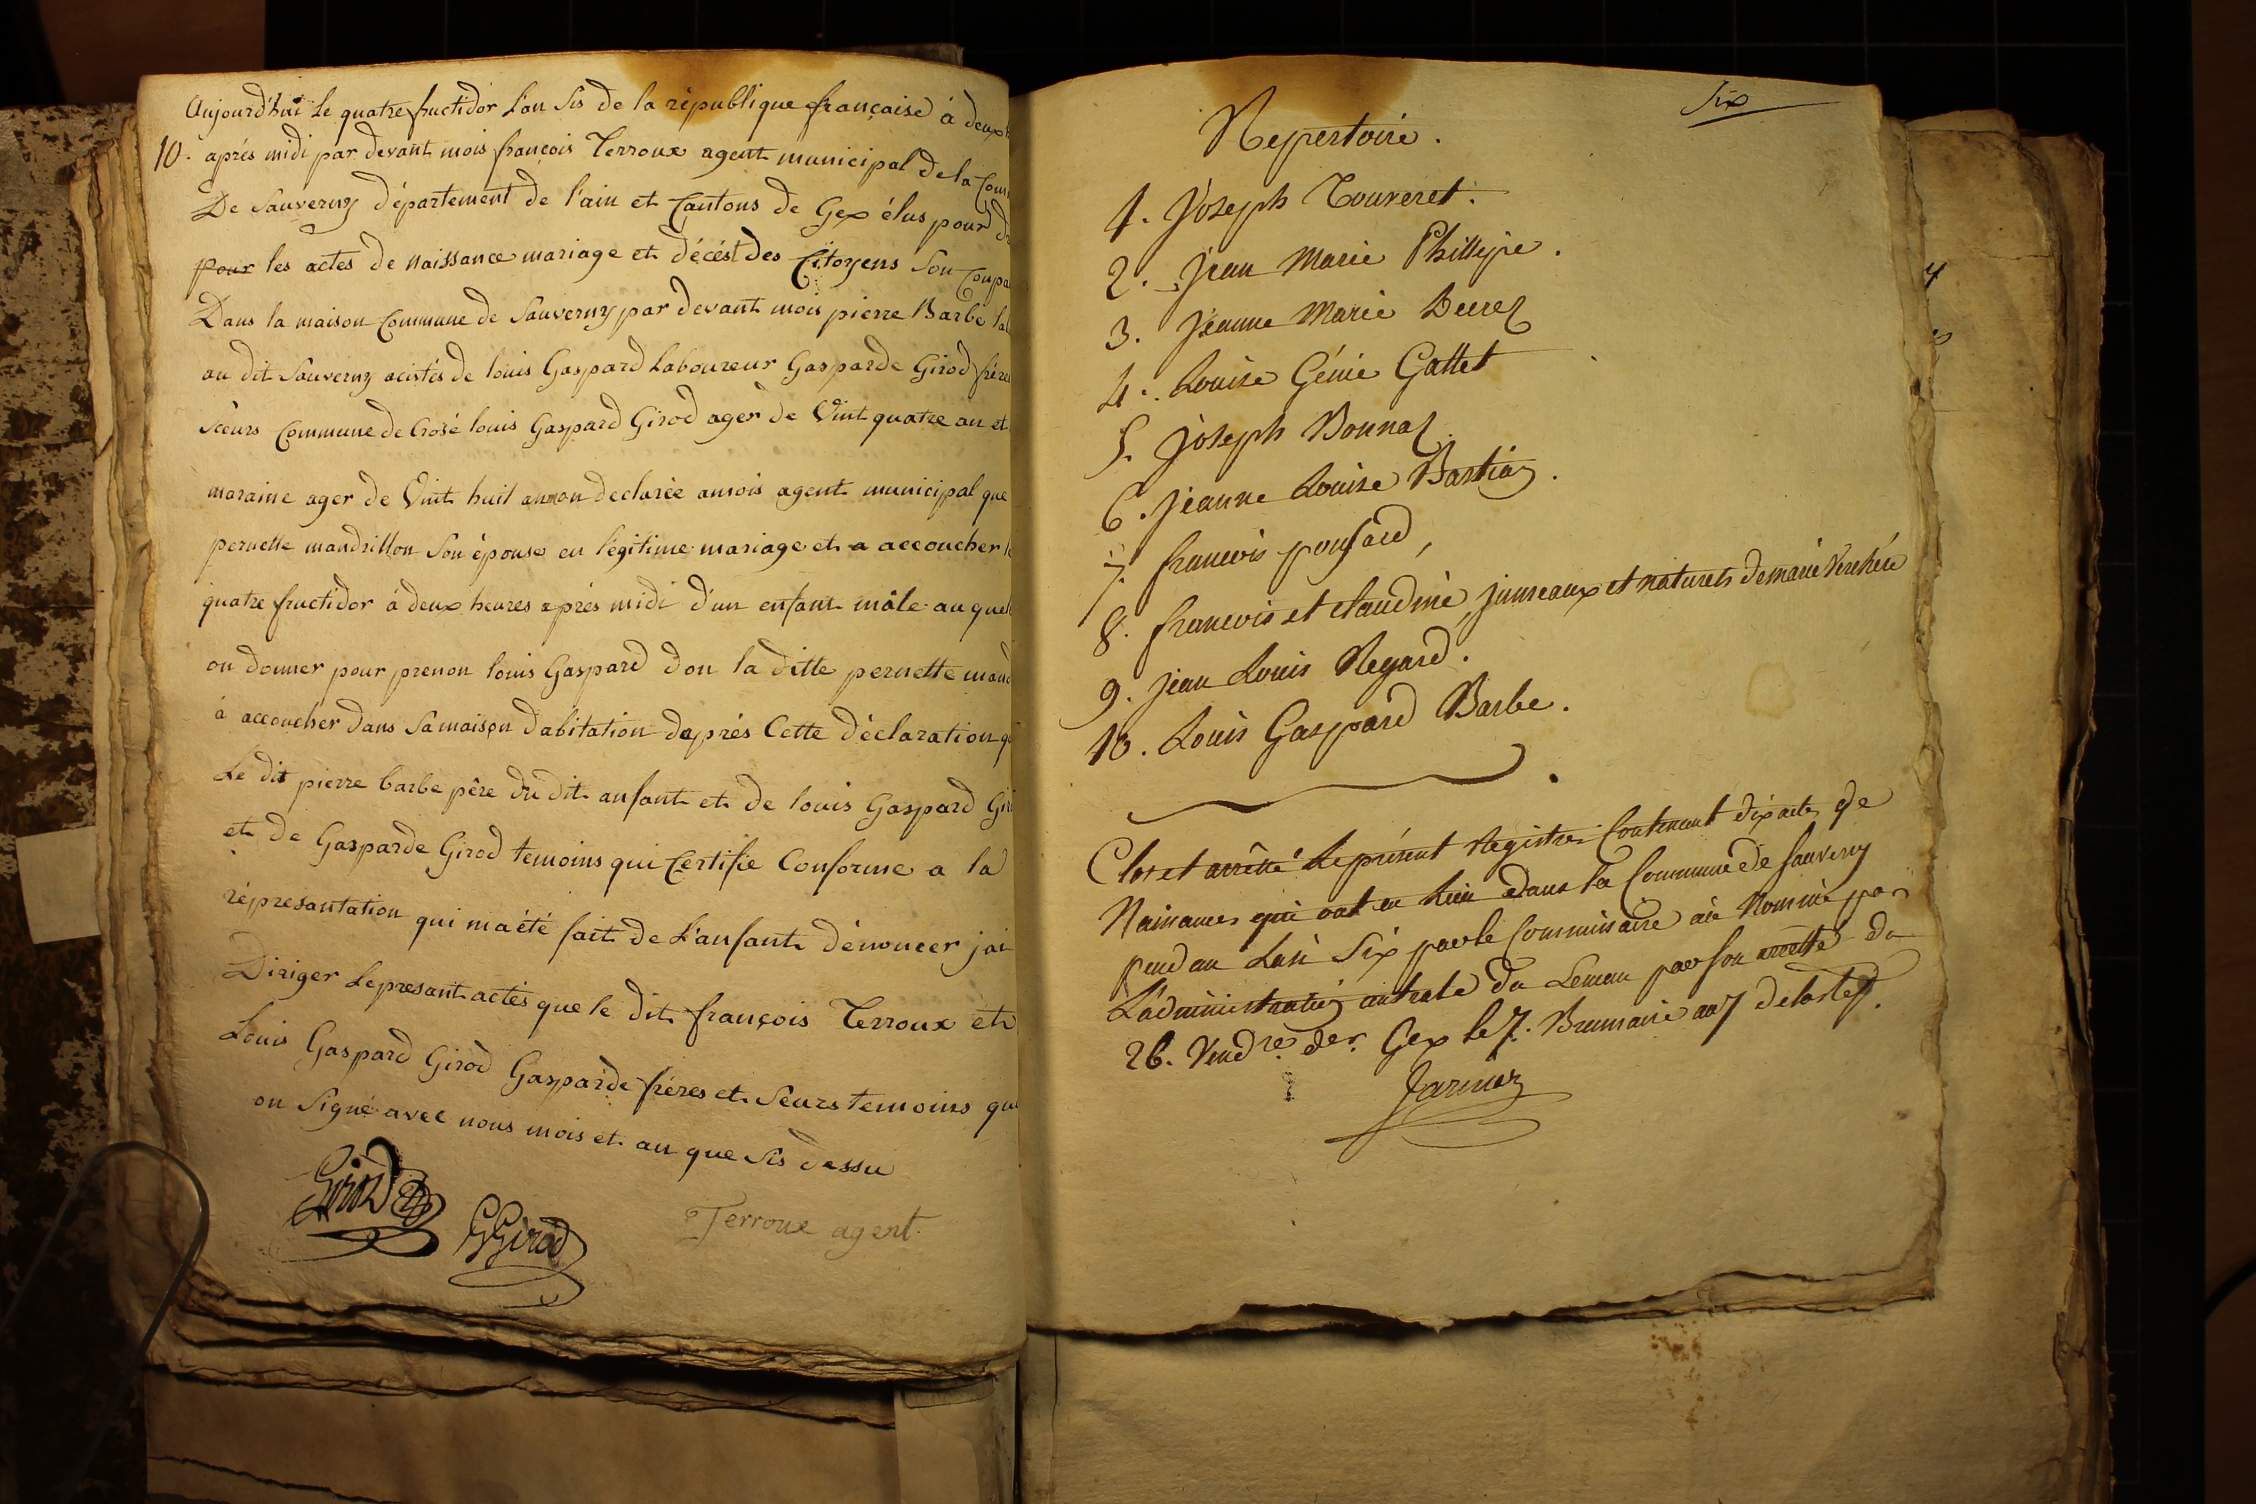 Aujourd'hui le quatre fructidor l'an sis de la république française à deux
10. après midi par devant mois françois Terroux agent municipal de la Com
De Sauverny département de l'ain et Cantons de Gex élus pour
pour les actes de naissance mariage et décést des Citoyens Son
Dans la maison Commune de Sauverny par devant mois pierre Barbe
au dit Sauverny acistés de louis Gaspard Laboureur Gasparde Girod frére
Sœurs Commune de Crosé louis Gaspard Girod ager de Vint quatre an et
maraine ager de Vint huit an on declarée amois agent municipal que
pernette mandrillon Son épouse en légitime mariage et a accoucher
quatre fructidor à deux heures après midi d'un enfant mâle au quel
on donner pour prenon louis Gaspard don la ditte pernette mand
à accoucher dans Sa maison d'abitation daprés Cette déclaration
Le dit pierre barbe pêre du dit anfant et de louis Gaspard Gi
et de Gasparde Girod temoins qui Certifie Conforme a la
répresantation qui ma été fait de L'anfant dénoncer jai
Diriger Le presant actes que le dit françois Terroux et
Louis Gaspard Girod Gasparde fréres et Seurs temoins qu
on Signé avec nous mois et an que sis dessu
Girod
GGirod
Terroux agent
Six
Repertoire.
1. Joseph Touveret.
2. Jean Marie Phillipe.
3. Jeanne Marie
4. Louise Génie Gattet
5. Joseph Bonnaz
6. Jeanne Louise Bastian.
7. francois ponsard,
8. francois et claudine jumeaux et naturels de marie
9. Jean Louis Regard.
10. Louis Gaspard Barbe.
Clos et arrêté Le présent Registre Contenant dix actes de
Naissances qui ont eu lieu dans la Commune de Sauverny
pendan Lan Six par le Commissaire aie Nommé par
L'administration centrale du Leman par son arretté du
26. Vendre. der. Gex le 7. Brumaire an 7 de la